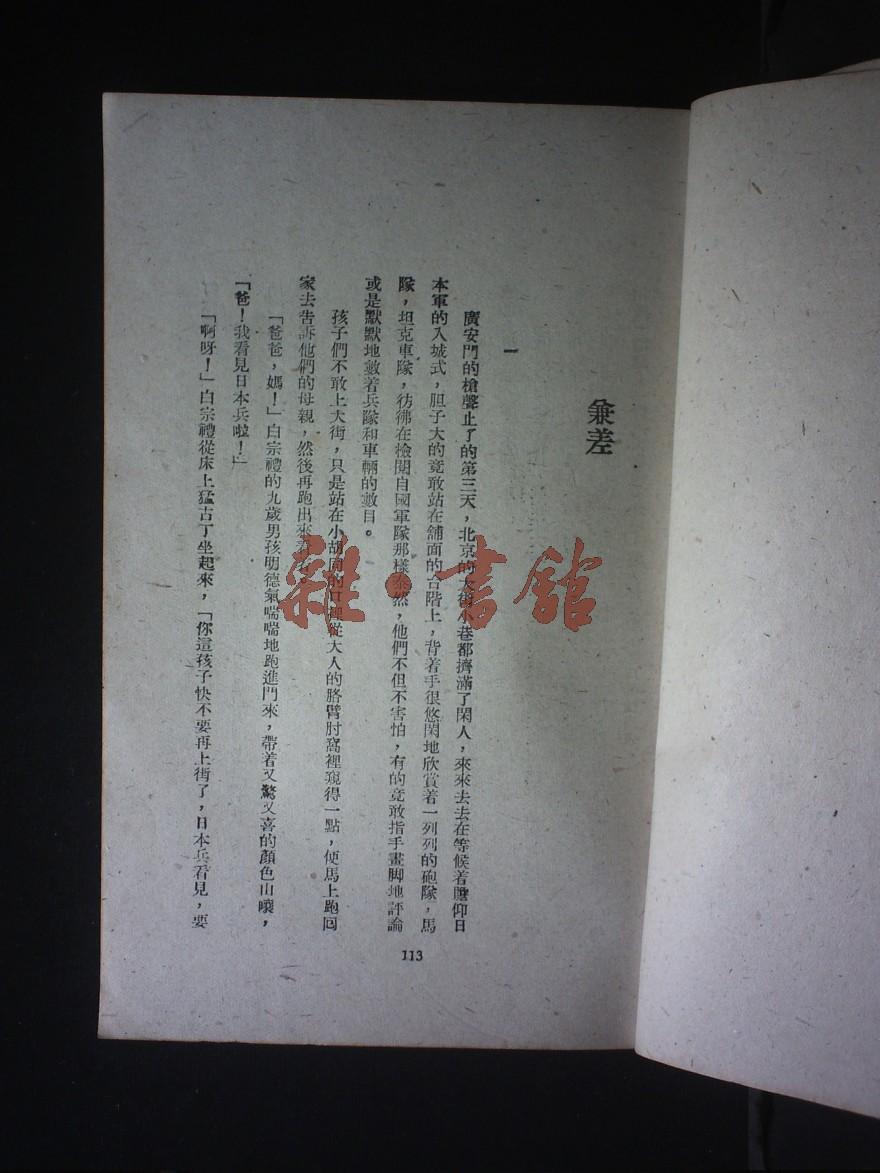 兼差
一
廣安門的槍聲止了的第三天，北京的大街小巷都擠滿了閑人，來來去去在等候着瞻仰日
本軍的入城式，胆子大的竟敢站在舖面的台階上，背着手很悠閑地欣賞着一列列的砲隊，馬
隊，坦克車隊，彷彿在檢閱自國軍隊那樣泰然，他們不但不害怕，有的竟敢指手畫脚地評論
或是默默地數着兵隊和車輛的數目。
孩子們不敢上大街，只是站在小胡同的口裡從大人的胳臂肘窩裡窺得一點，便馬上跑回
家去告訴他們的母親，然後再跑出來看
「爸爸，媽！」白宗禮的九歲男孩明德氣喘喘地跑進門來，帶着又驚又喜的顏色山嚷，
「爸！我看見日本兵啦！」
「啊呀！」白宗禮從床上猛古丁坐起來，「你這孩子快不要再上街了，日本兵看見，要
113
雜·書館